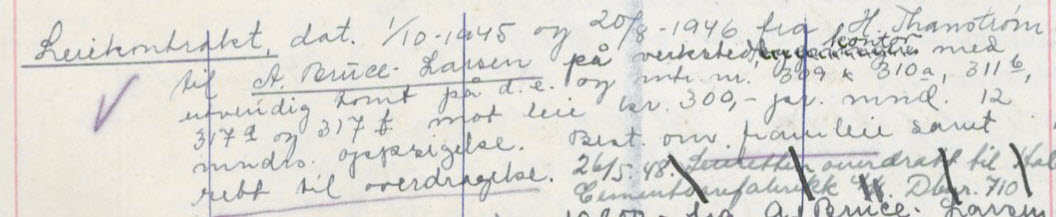 Leiekontrakt, dat. 1/10-1945 og 20/8-1946 fra H. Thanstrøm
til A. Bruce-Larsen på verksted, kontor med
utvendig tomt på d.e. og mtr. nr. 309 k 310a, 311b,
317a og 317b mot leie kr. 300,- pr. mnd. 12
mndrs. oppsigelse. Best. om framleie samt
rett til overdragelse. 26/5.48. Leieretten overdratt til
Cementvarefabrikk Dbnr. 710
fra A. Bruce-Larsen